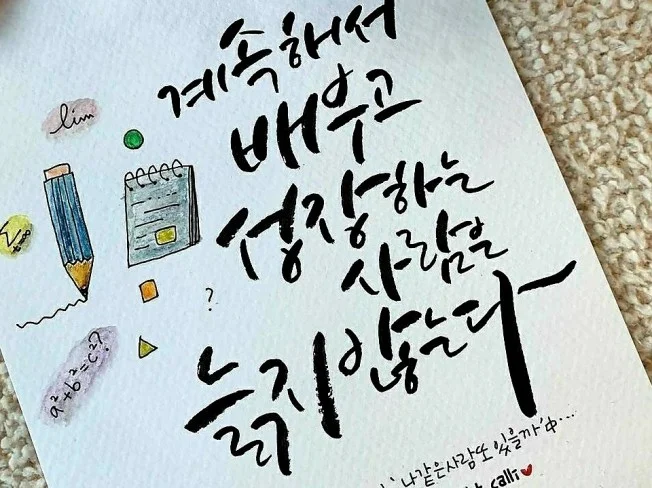 계속해서
배우고
성장하는
사람은
늙지 않는다
lim
a²+b²=c²?
?
'나같은사람또있을까'中...
calli